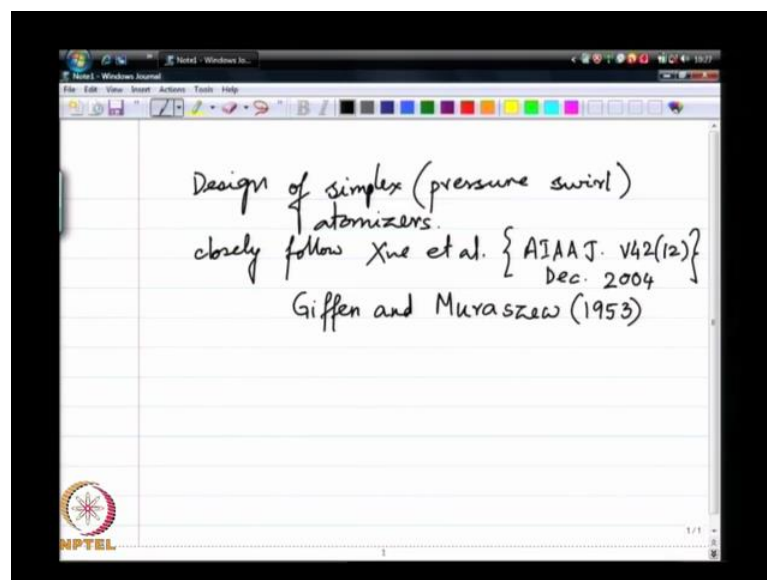 Note1 - Windows Jo...
10:27
Note1 - Windows Journal
File Edit View Insert Actions Tools Help
B I
Design of simplex (pressure swirl)
atomizers.
closely follow Xue et al. { AIAA J. V42(12) }
Dec. 2004
Giffen and Muraszew (1953)
1/1
NPTEL
1